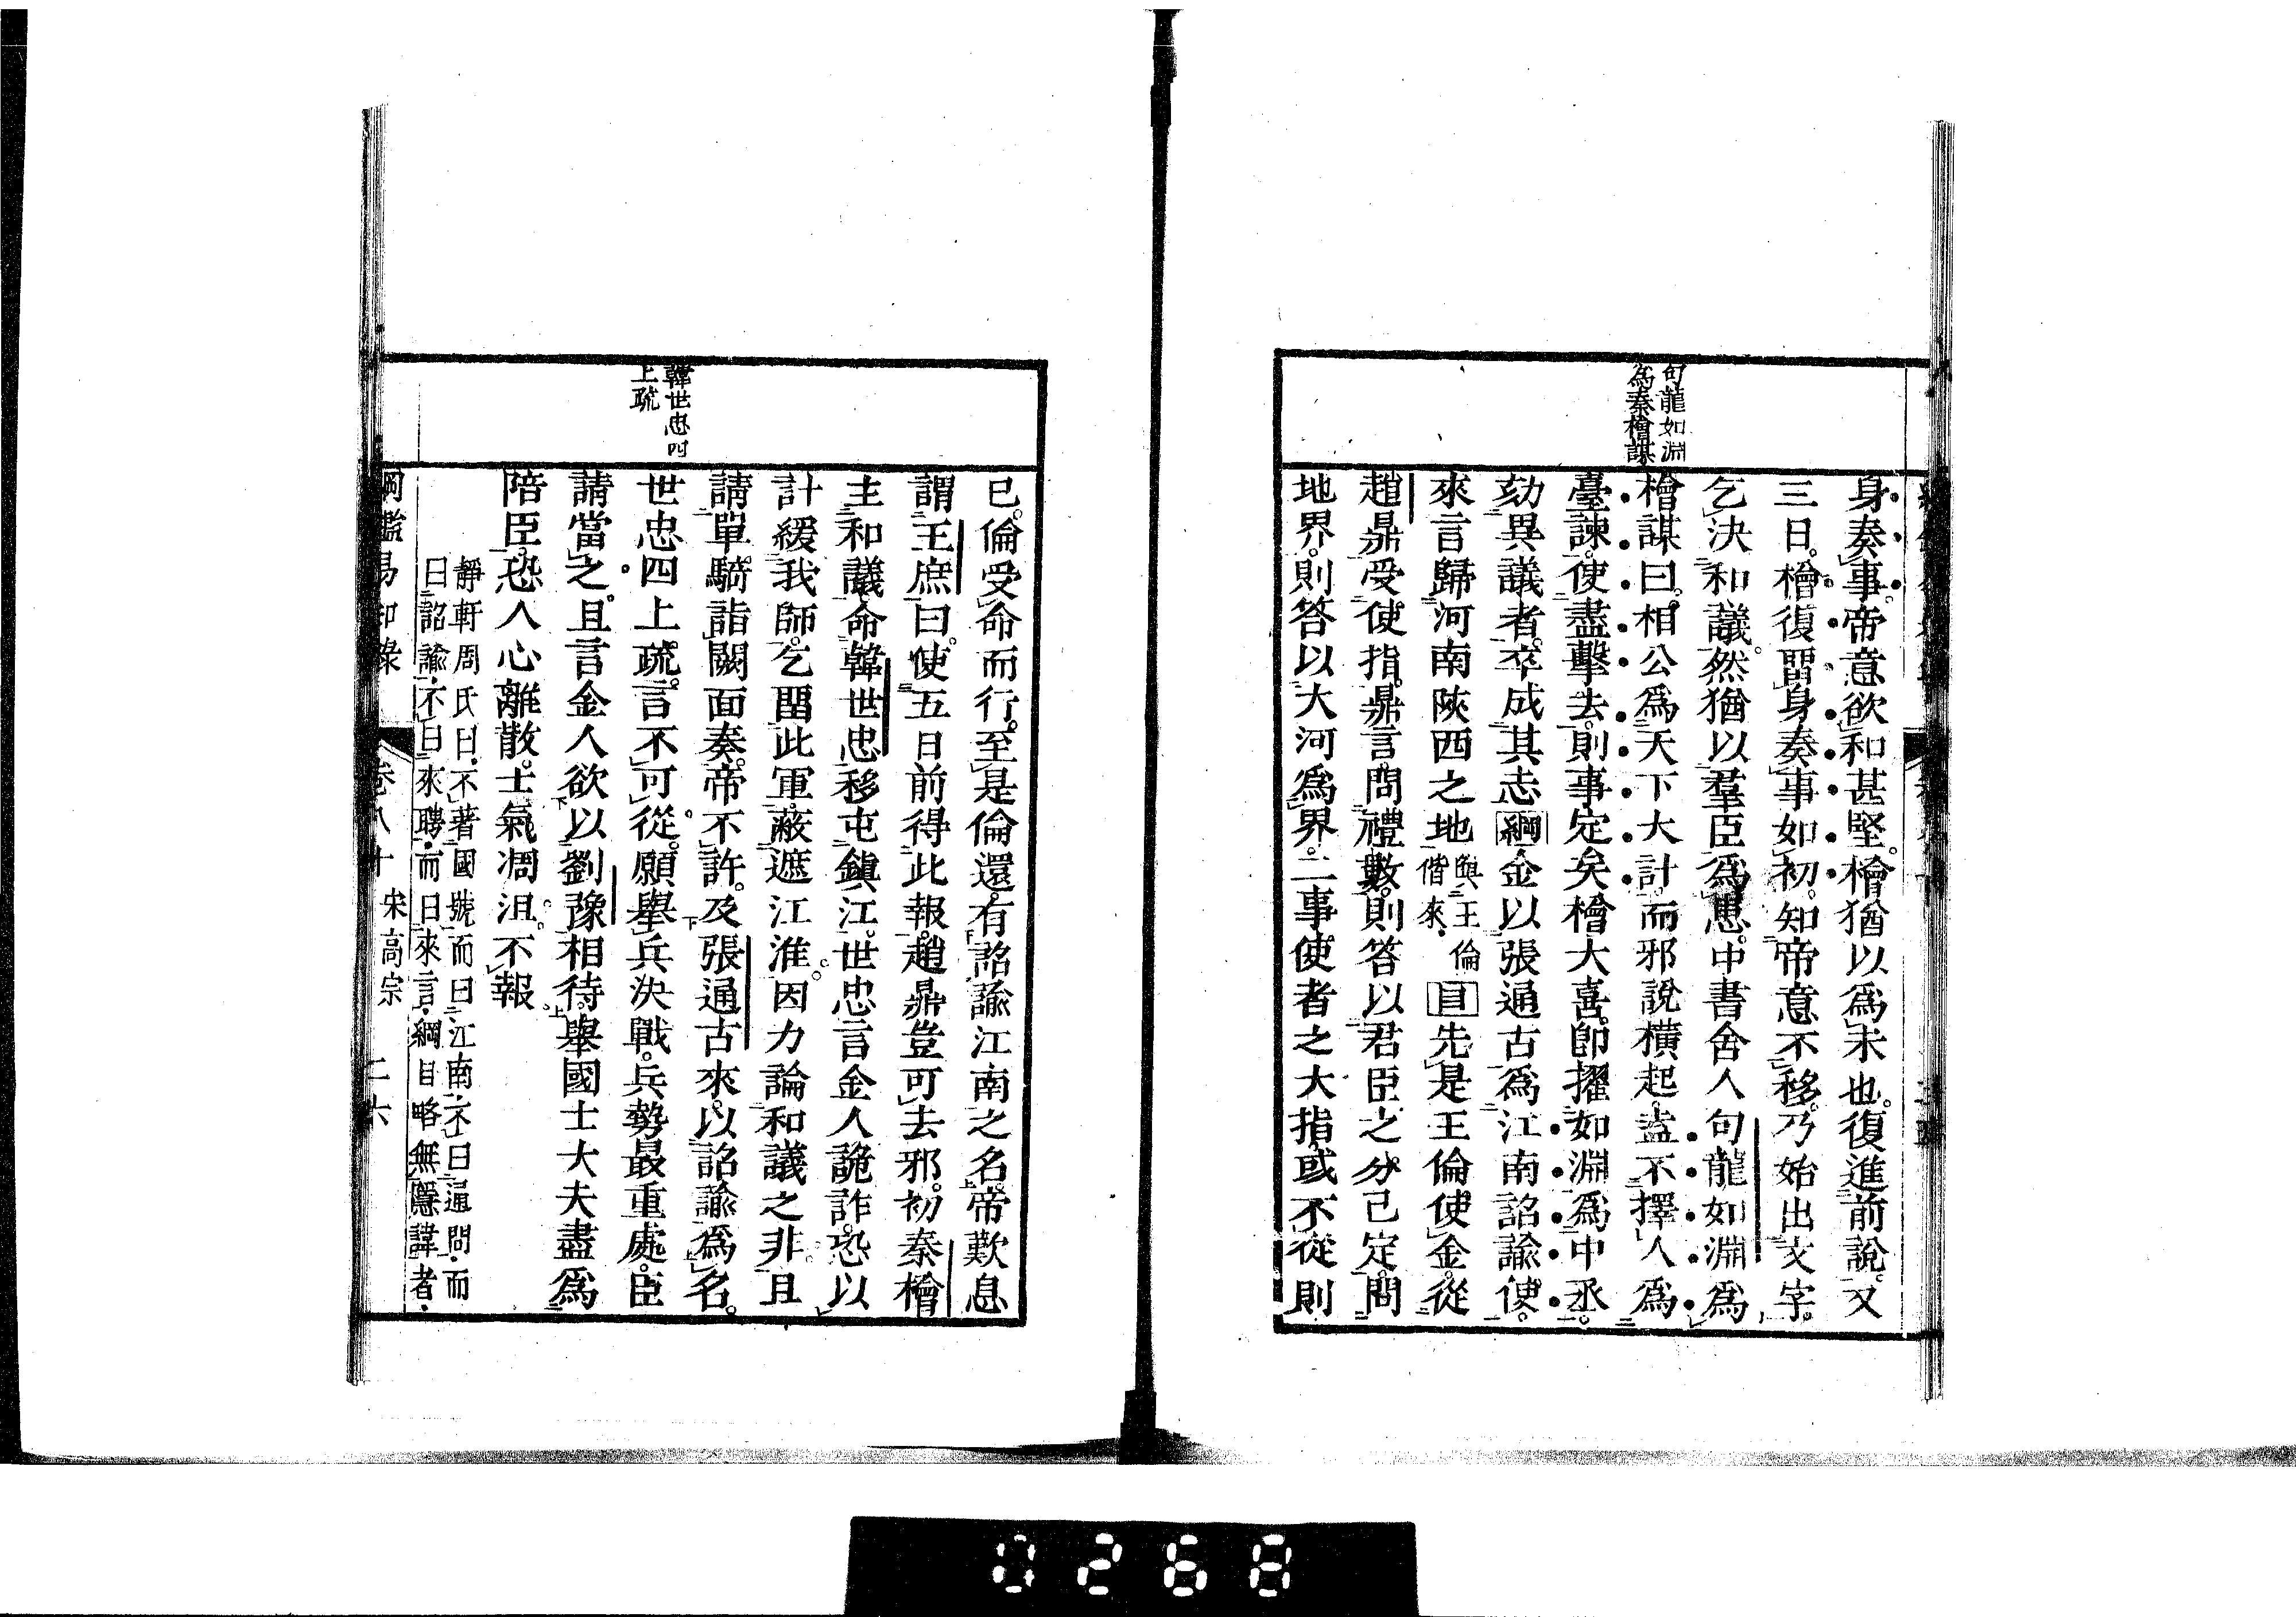 句龍如淵
為秦檜謀
身奏事帝意欲和甚堅檜猶以爲未也復進前說又
三日檜復畱身奏事如初知帝意不移乃始出文字
乞決和議然猶以羣臣爲患中書舍人句龍如淵爲
檜謀曰相公爲天下大計而邪說橫起盍不擇人爲
臺諫使盡擊去則事定矣檜大喜卽擢如淵爲中丞
劾異議者卒成其志綱金以張通古爲江南詔諭使
來言歸河南陝西之地與王倫
偕來目先是王倫使金從
趙鼎受使指鼎言問禮數則答以君臣之分已定問
地界則答以大河爲界二事使者之大指或不從則
韓世忠四
上疏
已倫受命而行至是倫還有詔諭江南之名帝歎息
謂王庶曰使五日前得此報趙鼎豈可去邪初秦檜
主和議命韓世忠移屯鎭江世忠言金人詭詐恐以
計緩我師乞畱此軍蔽遮江淮因力論和議之非且
請單騎詣闕面奏帝不許及張通古來以詔諭爲名
世忠四上疏言不可從願舉兵決戰兵勢最重處臣
請當之且言金人欲以劉豫相待舉國士大夫盡爲
陪臣恐人心離散士氣凋沮不報
靜軒周氏曰不著國號而曰江南不曰通問而
曰詔諭不曰來聘而曰來言綱目略無隱諱者
綱鑑易知錄 卷八十 宋高宗 二六
0268